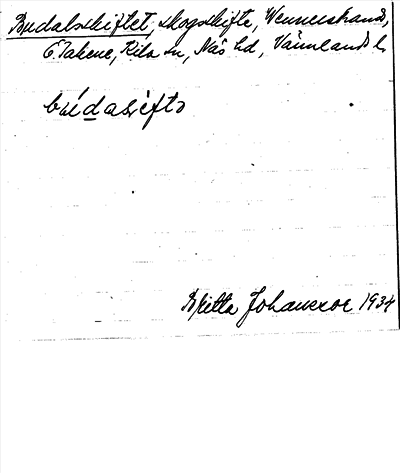 Budalsskiftet, skogskifte, Wennerstrand,
Ö. Takene, Kila sn, Näs hd, Värmlands l.
búdasiftə
Britta Johansson 1934